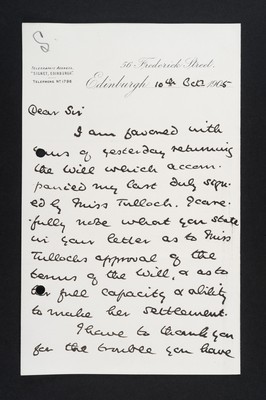 S
56 Frederick Street,
TELEGRAPHIC ADDRESS,
"SIGNET, EDINBURGH"
TELEPHONE No 1788
Edinburgh 10th Octr 1905
Dear Sir
I am favored with
yours of yesterday returning
the Will which accom-
panied my last duly sign-
ed by Miss Tulloch. I care-
fully note what you state
in your letter as to Miss
Tullochs approval of the
terms of the Will, & as to
her full capacity & ability
to make her settlement.
I have to thank you
for the trouble you have